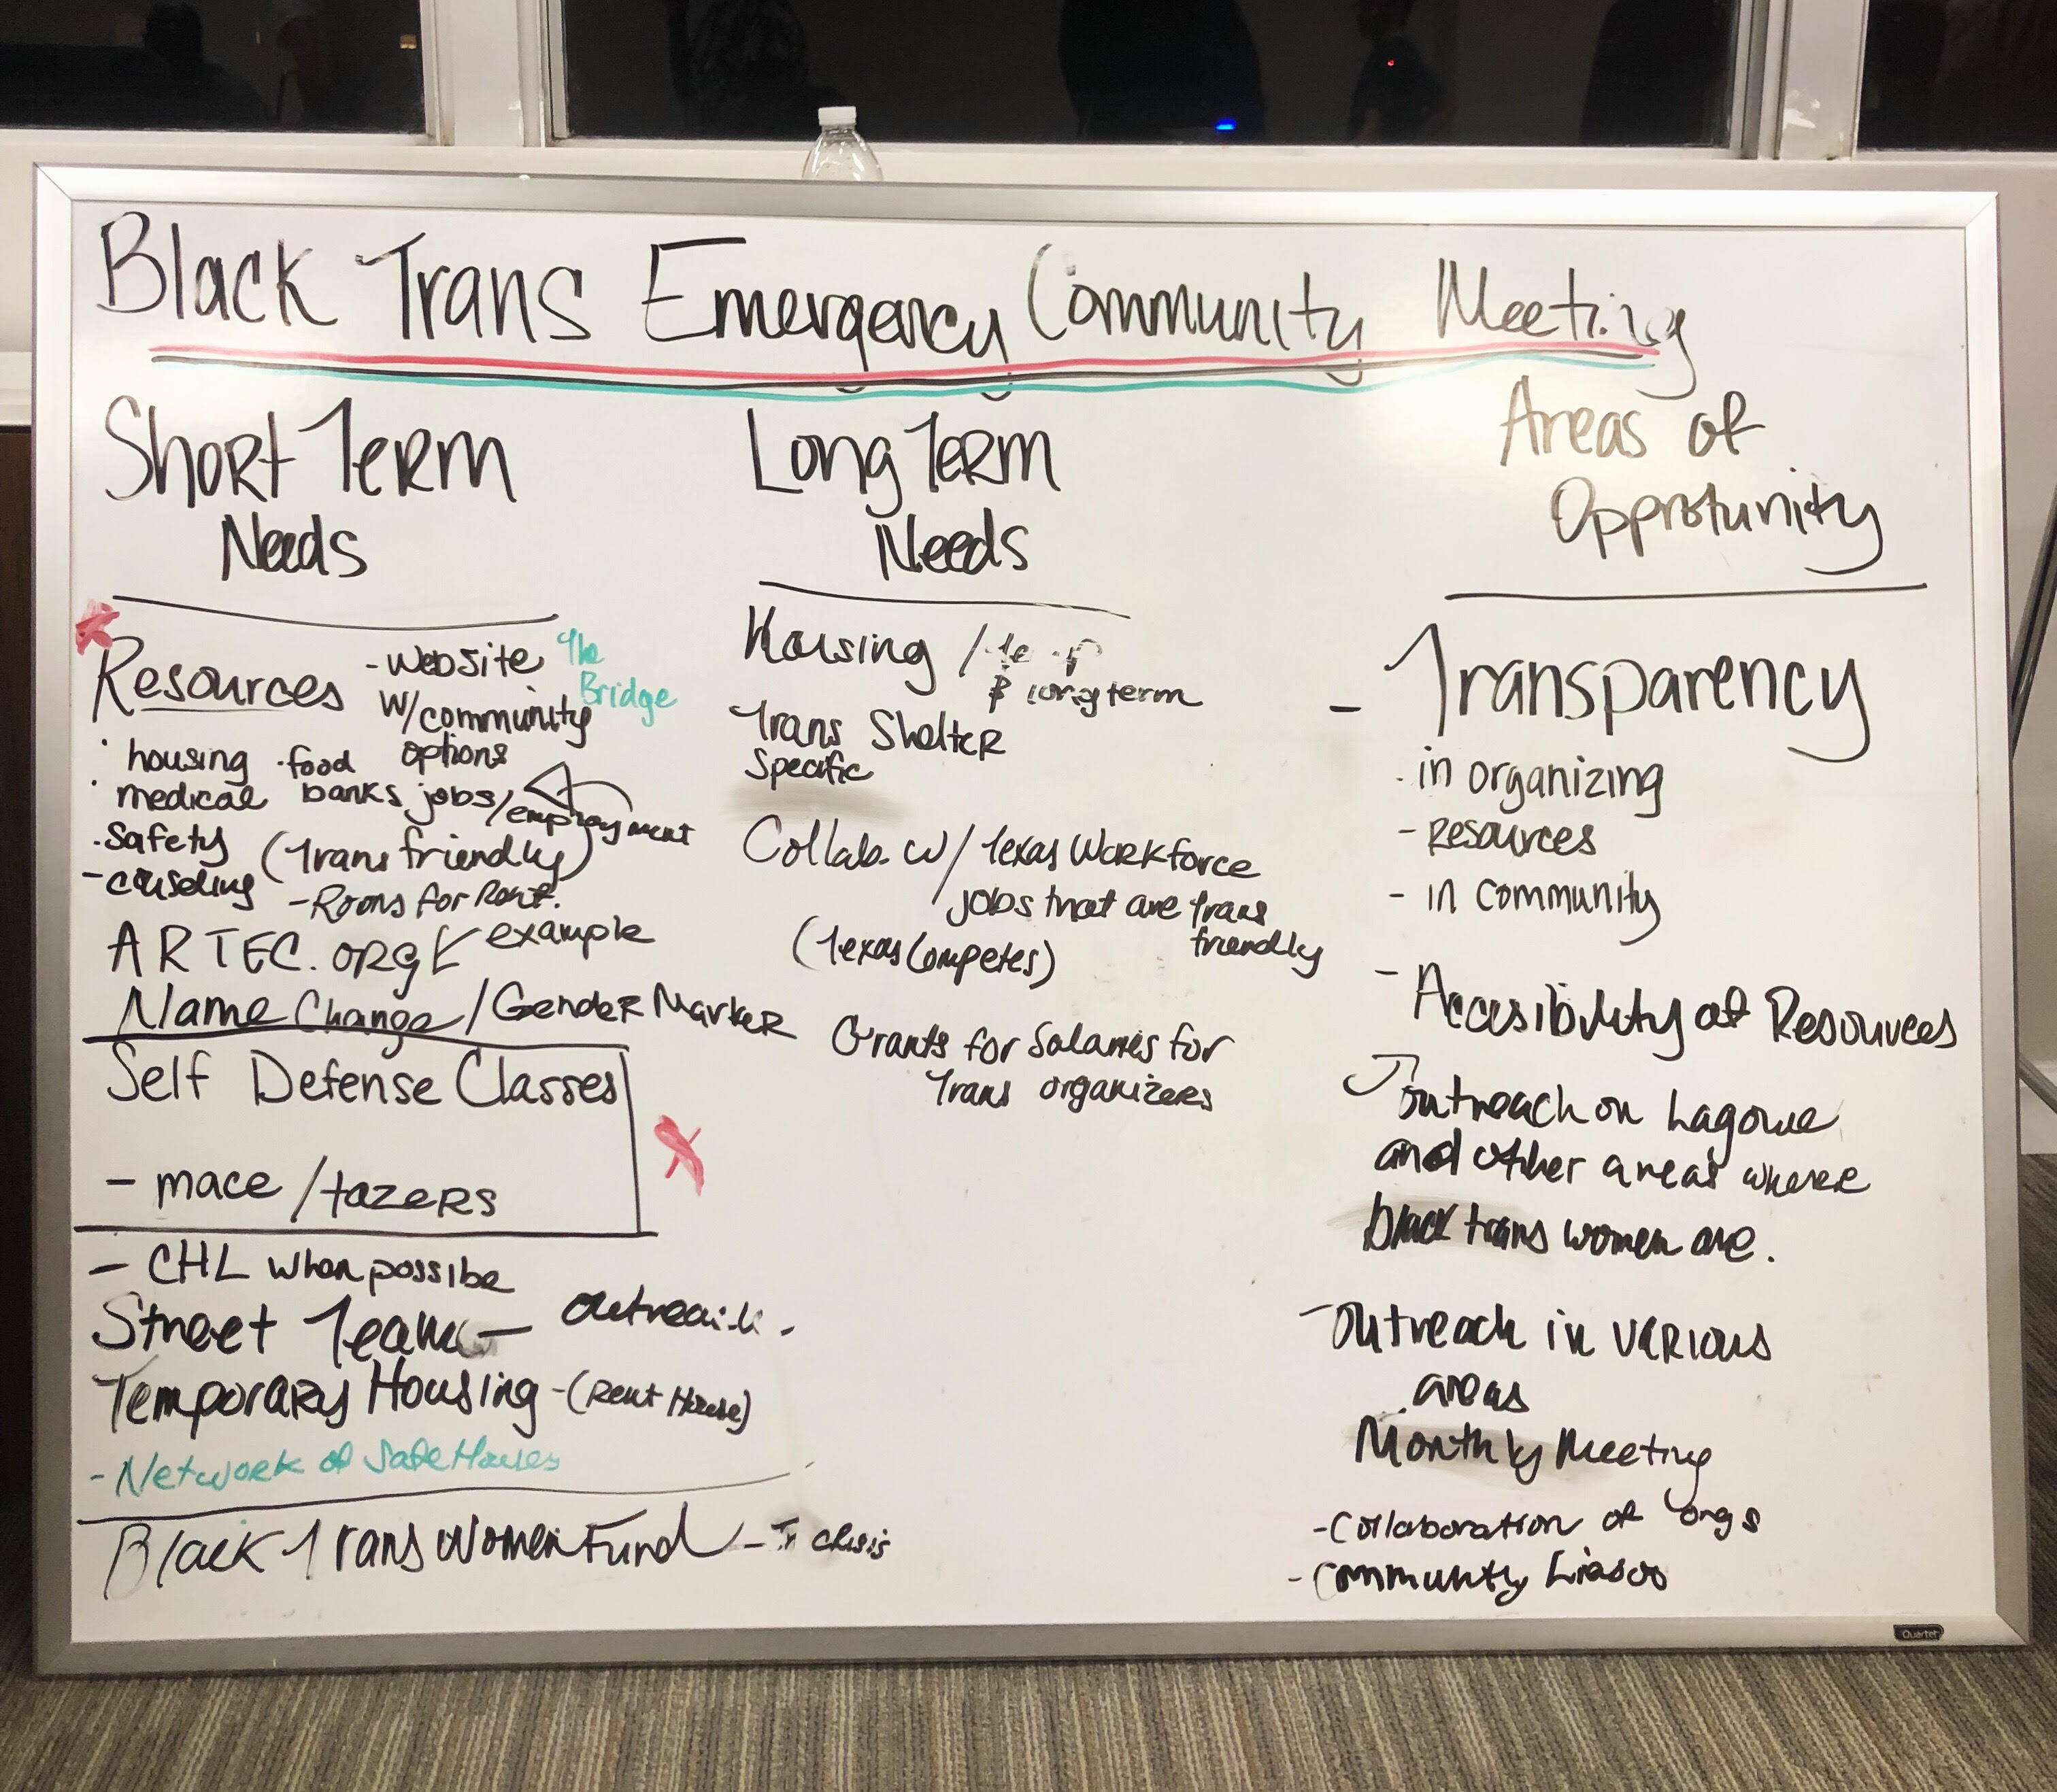 Black Trans Emergency Community Meeting
Short Term
Needs
Resources
- website
w/community
options
The
Bridge
· housing · food
· medical banks jobs/employment
· Safety (trans friendly)
- Rooms for Rent.
ARTEC.ORG example
Name Change/Gender Marker
Self Defense Classes
- mace/tazers
- CHL when possibe
Street Team -
Temporary Housing - (Rent House)
- Network of Safe Houses
Black Trans Women Fund - In crisis
Long Term
Needs
Housing / temp
& long term
Trans Shelter
Specific
Collab. w/ Texas Workforce
jobs that are trans
friendly
(Texas Competes)
Grants for Salaries for
Trans organizers
Areas of
Opprotunity
- Transparency
· in organizing
- Resources
- in community
- Accesibility of Resources
outreach on Lagowe
and other areas where
black trans women are.
- Outreach in various
areas
Monthly Meeting
- Collaboration of orgs
- Community
Quartet